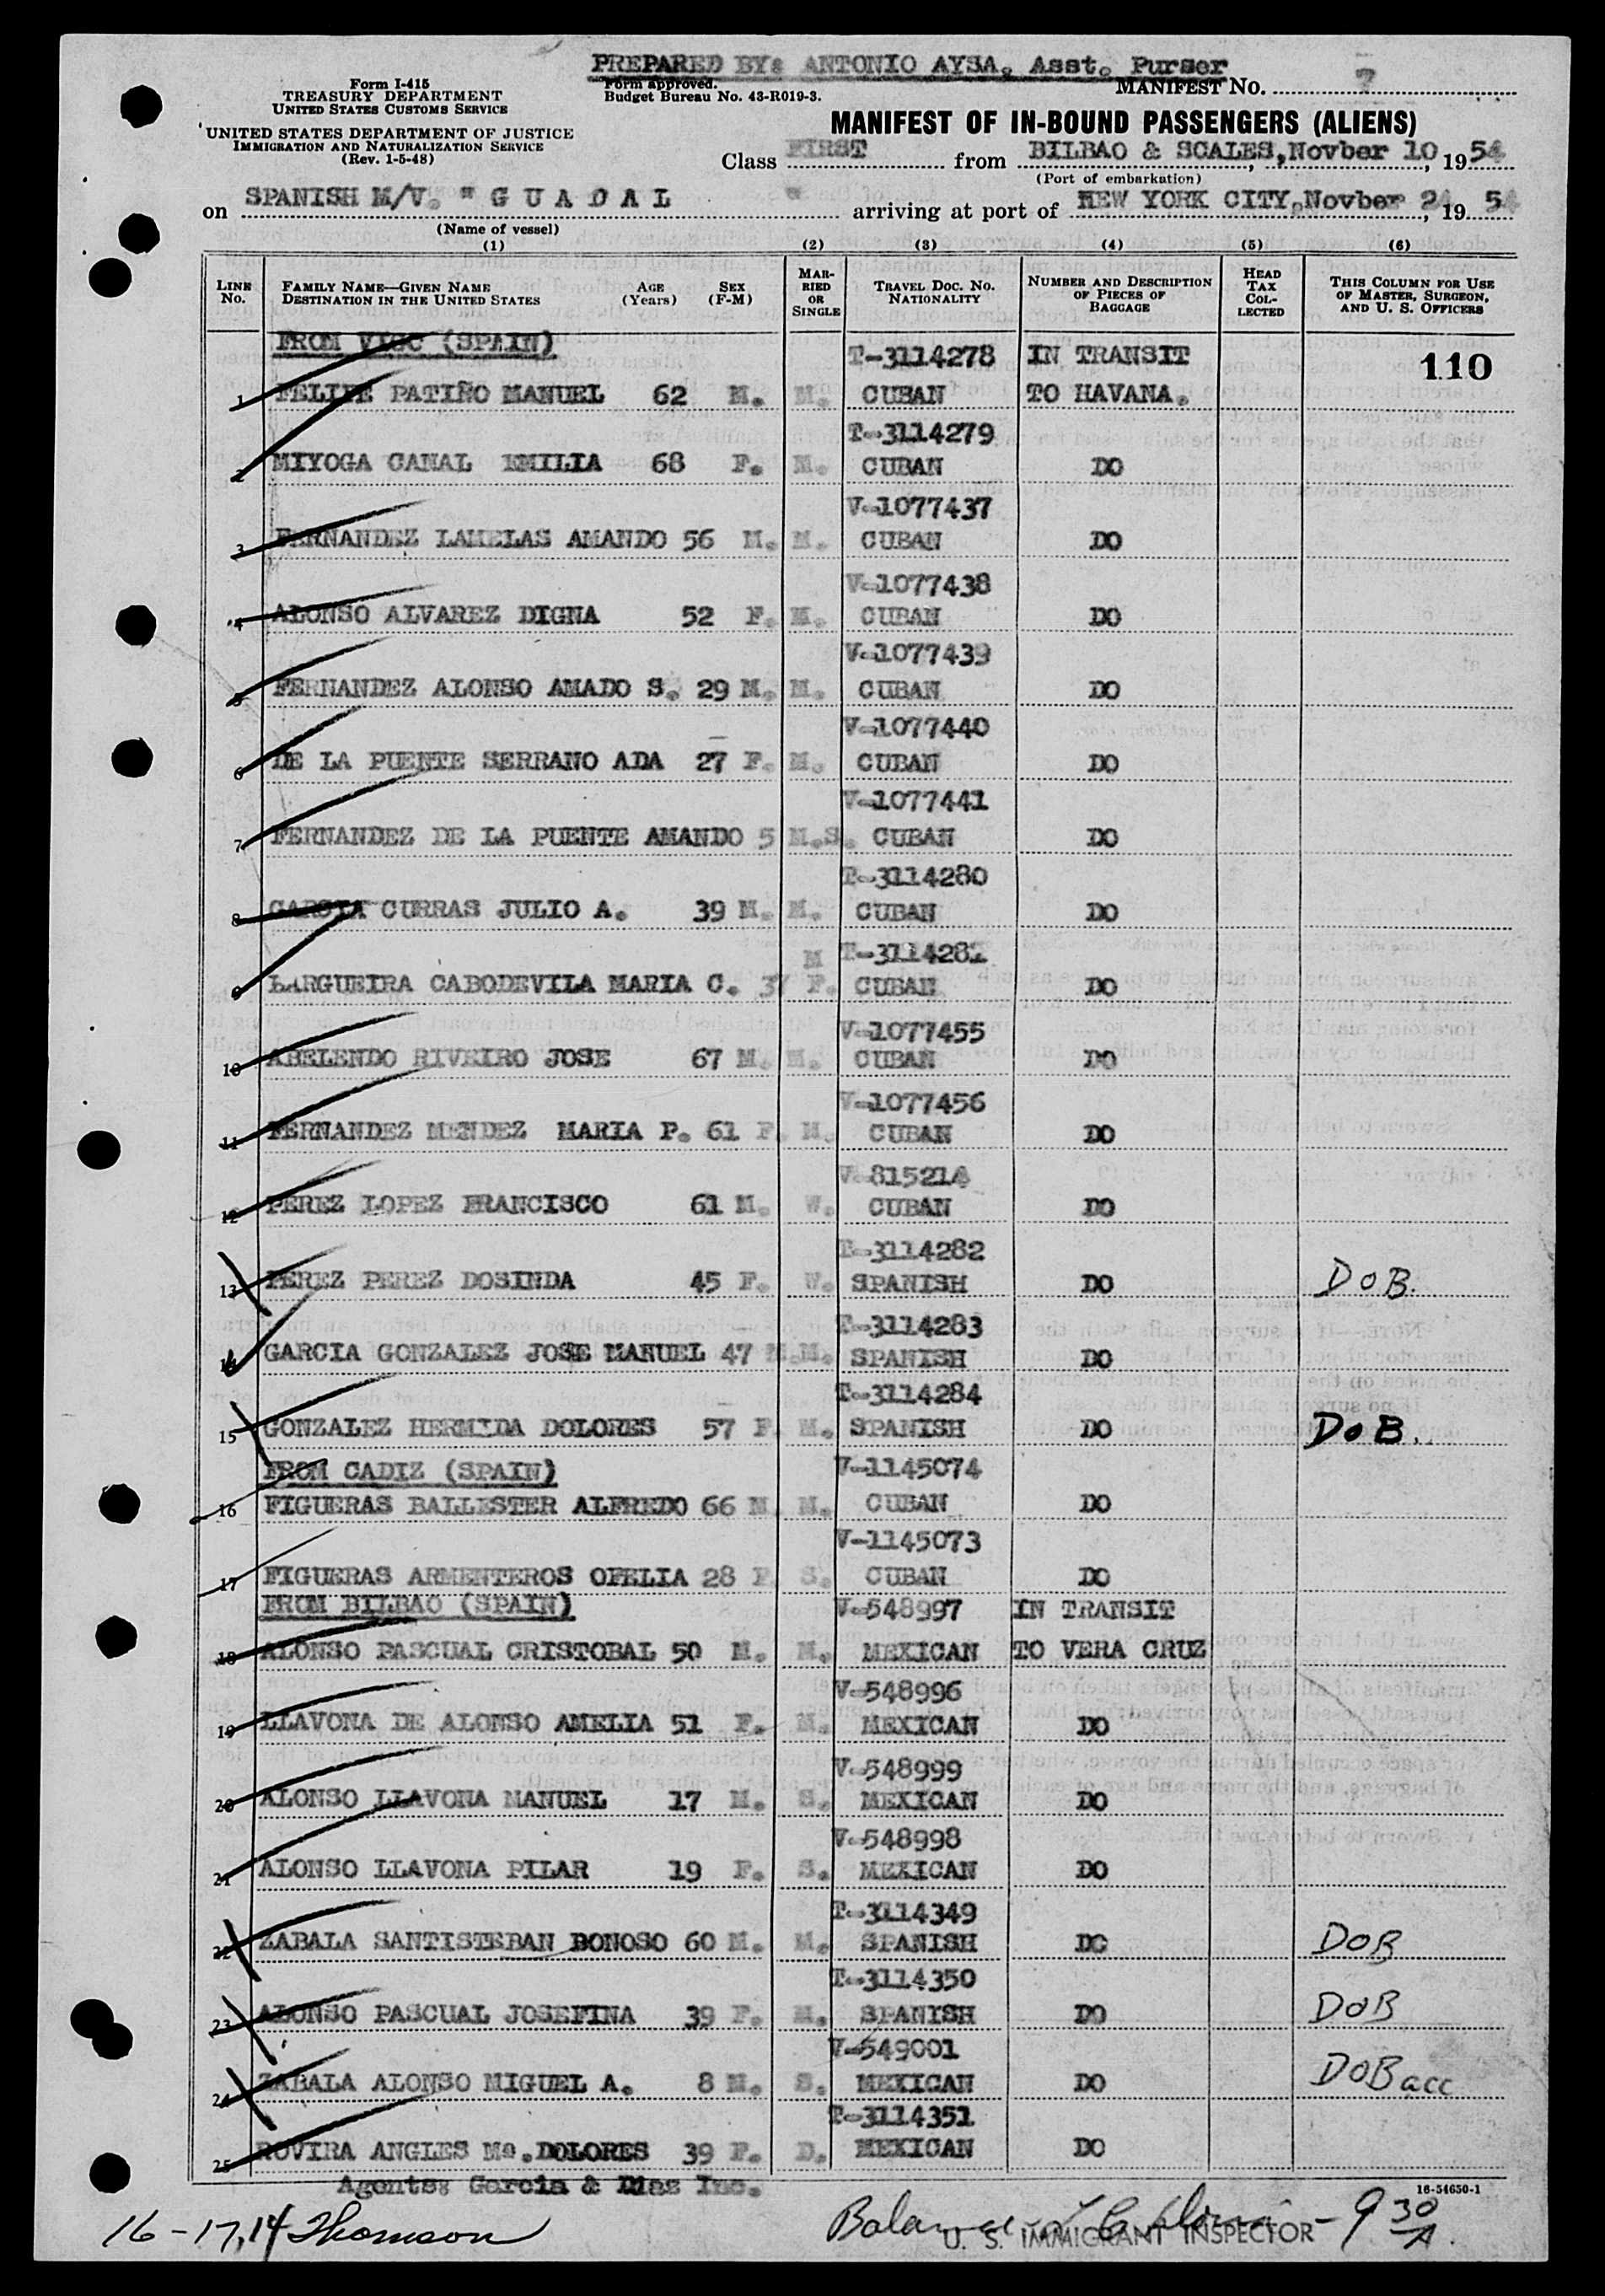 PREPARED BY: ANTONIO AYSA. Asst. Purser
Form I-415
TREASURY DEPARTMENT
UNITED STATES CUSTOMS SERVICE
UNITED STATES DEPARTMENT OF JUSTICE
IMMIGRATION AND NATURALIZATION SERVICE
(Rev. 1-5-48)
Form approved.
Budget Bureau No. 43-R019-3.
MANIFEST NO. 7
MANIFEST OF IN-BOUND PASSENGERS (ALIENS)
Class FIRST from BILBAO & SCALES, Novber 10, 1954
(Port of embarkation)
on SPANISH M/V. "GUADAL " arriving at port of NEW YORK CITY, Novber 24, 1954
(Name of vessel)
(1) (2) (3) (4) (5) (6)
LINE No. FAMILY NAME—GIVEN NAME DESTINATION IN THE UNITED STATES AGE (Years) SEX (F-M) MARRIED OR SINGLE TRAVEL DOC. NO. NATIONALITY NUMBER AND DESCRIPTION OF PIECES OF BAGGAGE HEAD TAX COLLECTED THIS COLUMN FOR USE OF MASTER, SURGEON, AND U. S. OFFICERS
FROM VIGO (SPAIN) T-3114278 IN TRANSIT 110
1 FELIPE PATIÑO MANUEL 62 M. M. CUBAN TO HAVANA.
T-3114279
2 MIYOGA CANAL EMILIA 68 F. M. CUBAN DO
V-1077437
3 FERNANDEZ LAMELAS AMANDO 56 M. M. CUBAN DO
V-1077438
4 ALONSO ALVAREZ DIGNA 52 F. M. CUBAN DO
V-1077439
5 FERNANDEZ ALONSO AMADO S. 29 M. M. CUBAN DO
V-1077440
6 DE LA PUENTE SERRANO ADA 27 F. M. CUBAN DO
V-1077441
7 FERNANDEZ DE LA PUENTE AMANDO 5 M.S. CUBAN DO
T-3114280
8 GARCIA CURRAS JULIO A. 39 M. M. CUBAN DO
M T-3114281
9 BARGUEIRA CABODEVILA MARIA C. 37 F. CUBAN DO
V-1077455
10 ABELENDO RIVEIRO JOSE 67 M. M. CUBAN DO
V-1077456
11 FERNANDEZ MENDEZ MARIA P. 61 F. M. CUBAN DO
V-815214
12 PEREZ LOPEZ FRANCISCO 61 M. W. CUBAN DO
T-3114282
13 PEREZ PEREZ DOSINDA 45 F. W. SPANISH DO DoB.
T-3114283
14 GARCIA GONZALEZ JOSE MANUEL 47 M.M. SPANISH DO
T-3114284
15 GONZALEZ HERMIDA DOLORES 57 F. M. SPANISH DO DoB.
FROM CADIZ (SPAIN) V-1145074
16 FIGUERAS BALLESTER ALFREDO 66 M. M. CUBAN DO
V-1145073
17 FIGUERAS ARMENTEROS OFELIA 28 F. S. CUBAN DO
FROM BILBAO (SPAIN) V-548997 IN TRANSIT
18 ALONSO PASCUAL CRISTOBAL 50 M. M. MEXICAN TO VERA CRUZ
V-548996
19 LLAVONA DE ALONSO AMELIA 51 F. M. MEXICAN DO
V-548999
20 ALONSO LLAVONA MANUEL 17 M. S. MEXICAN DO
V-548998
21 ALONSO LLAVONA PILAR 19 F. S. MEXICAN DO
T-3114349
22 ZABALA SANTISTEBAN DONOSO 60 M. M. SPANISH DO DOB
T-3114350
23 ALONSO PASCUAL JOSEFINA 39 F. M. SPANISH DO DOB
V-549001
24 ZABALA ALONSO MIGUEL A. 8 M. S. MEXICAN DO DOB acc
T-3114351
25 ROVIRA ANGLES Mª. DOLORES 39 F. D. MEXICAN DO
Agents: Garcia & Diaz Inc.
16-54650-1
16-17,14 Thomson
Balance - 9 30/A.
U. S. IMMIGRANT INSPECTOR